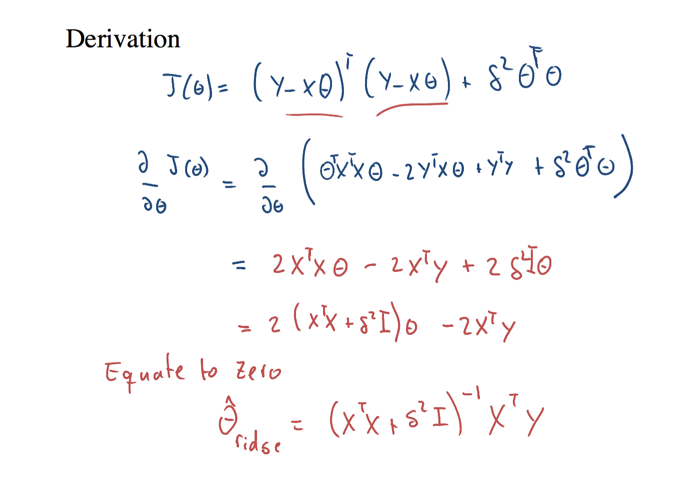 Derivation
J(θ) = (Y-Xθ)ᵀ (Y-Xθ) + δ²θᵀθ
∂/∂θ J(θ) = ∂/∂θ (θᵀXᵀXθ - 2YᵀXθ + YᵀY + δ²θᵀθ)
= 2XᵀXθ - 2XᵀY + 2δ²Iθ
= 2 (XᵀX + δ²I)θ - 2XᵀY
Equate to zero
θ̂ridge = (XᵀX + δ²I)⁻¹ XᵀY